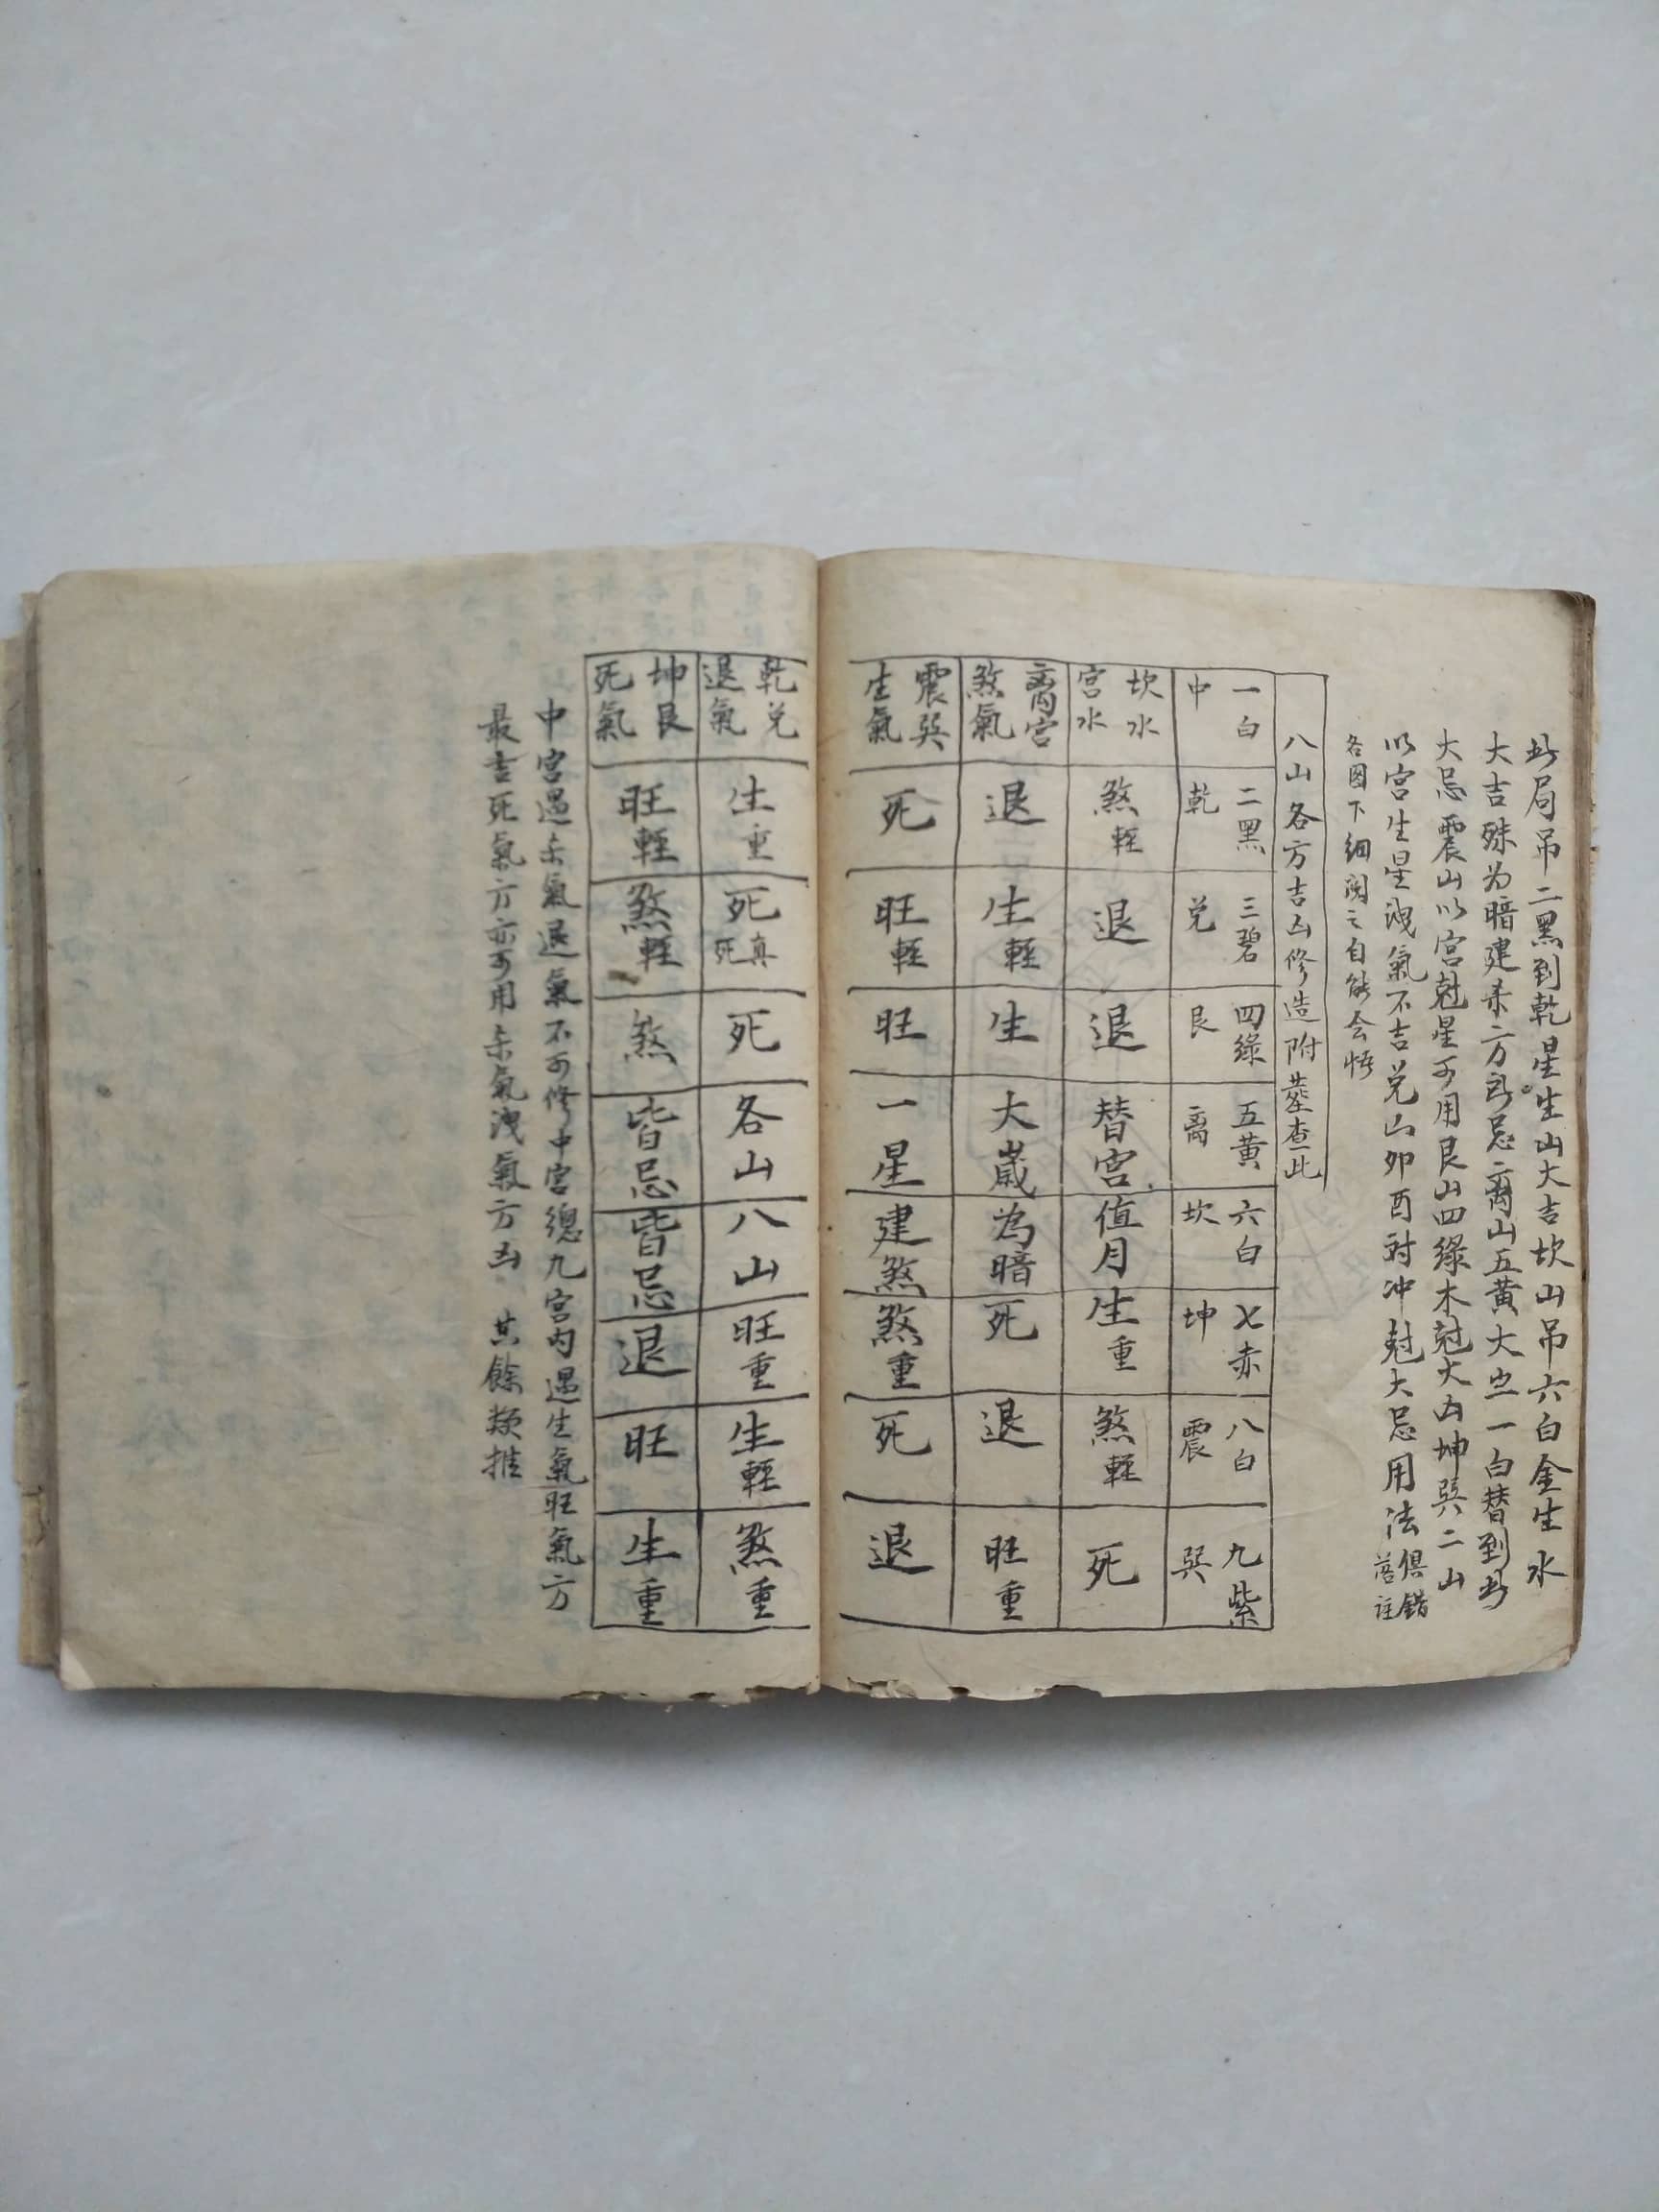 此局吊二黑到乾星生山大吉坎山吊六白金生水
大吉殊为暗建杀方所忌离山五黄大岁一白替到此
大忌震山以宫尅星可用艮山四綠木尅大凶坤巽二山
以宫生星洩氣不吉兑山卯酉对冲尅大忌用法俱錯落註
各图下細阅之自能会悟
八山各方吉凶修造附塟查此
一白中 二黑乾 三碧兑 四綠艮 五黃离 六白坎 七赤坤 八白震 九紫巽
坎水宫水 煞輕 退 退 替宫 值月 生重 煞輕 死
离宫煞氣 退 生輕 生 大歲 為暗 死 退 旺重
震巽生氣 死 旺輕 旺 一星 建煞 煞重 死 退
乾兑退氣 生重 死真死 死 各山 八山 旺重 生輕 煞重
坤艮死氣 旺輕 煞輕 煞 皆忌 皆忌 退 旺 生重
中宫遇杀氣退氣不可修中宫總九宫内遇生氣旺氣方
最吉死氣方亦可用杀氣洩氣方凶 其餘類推